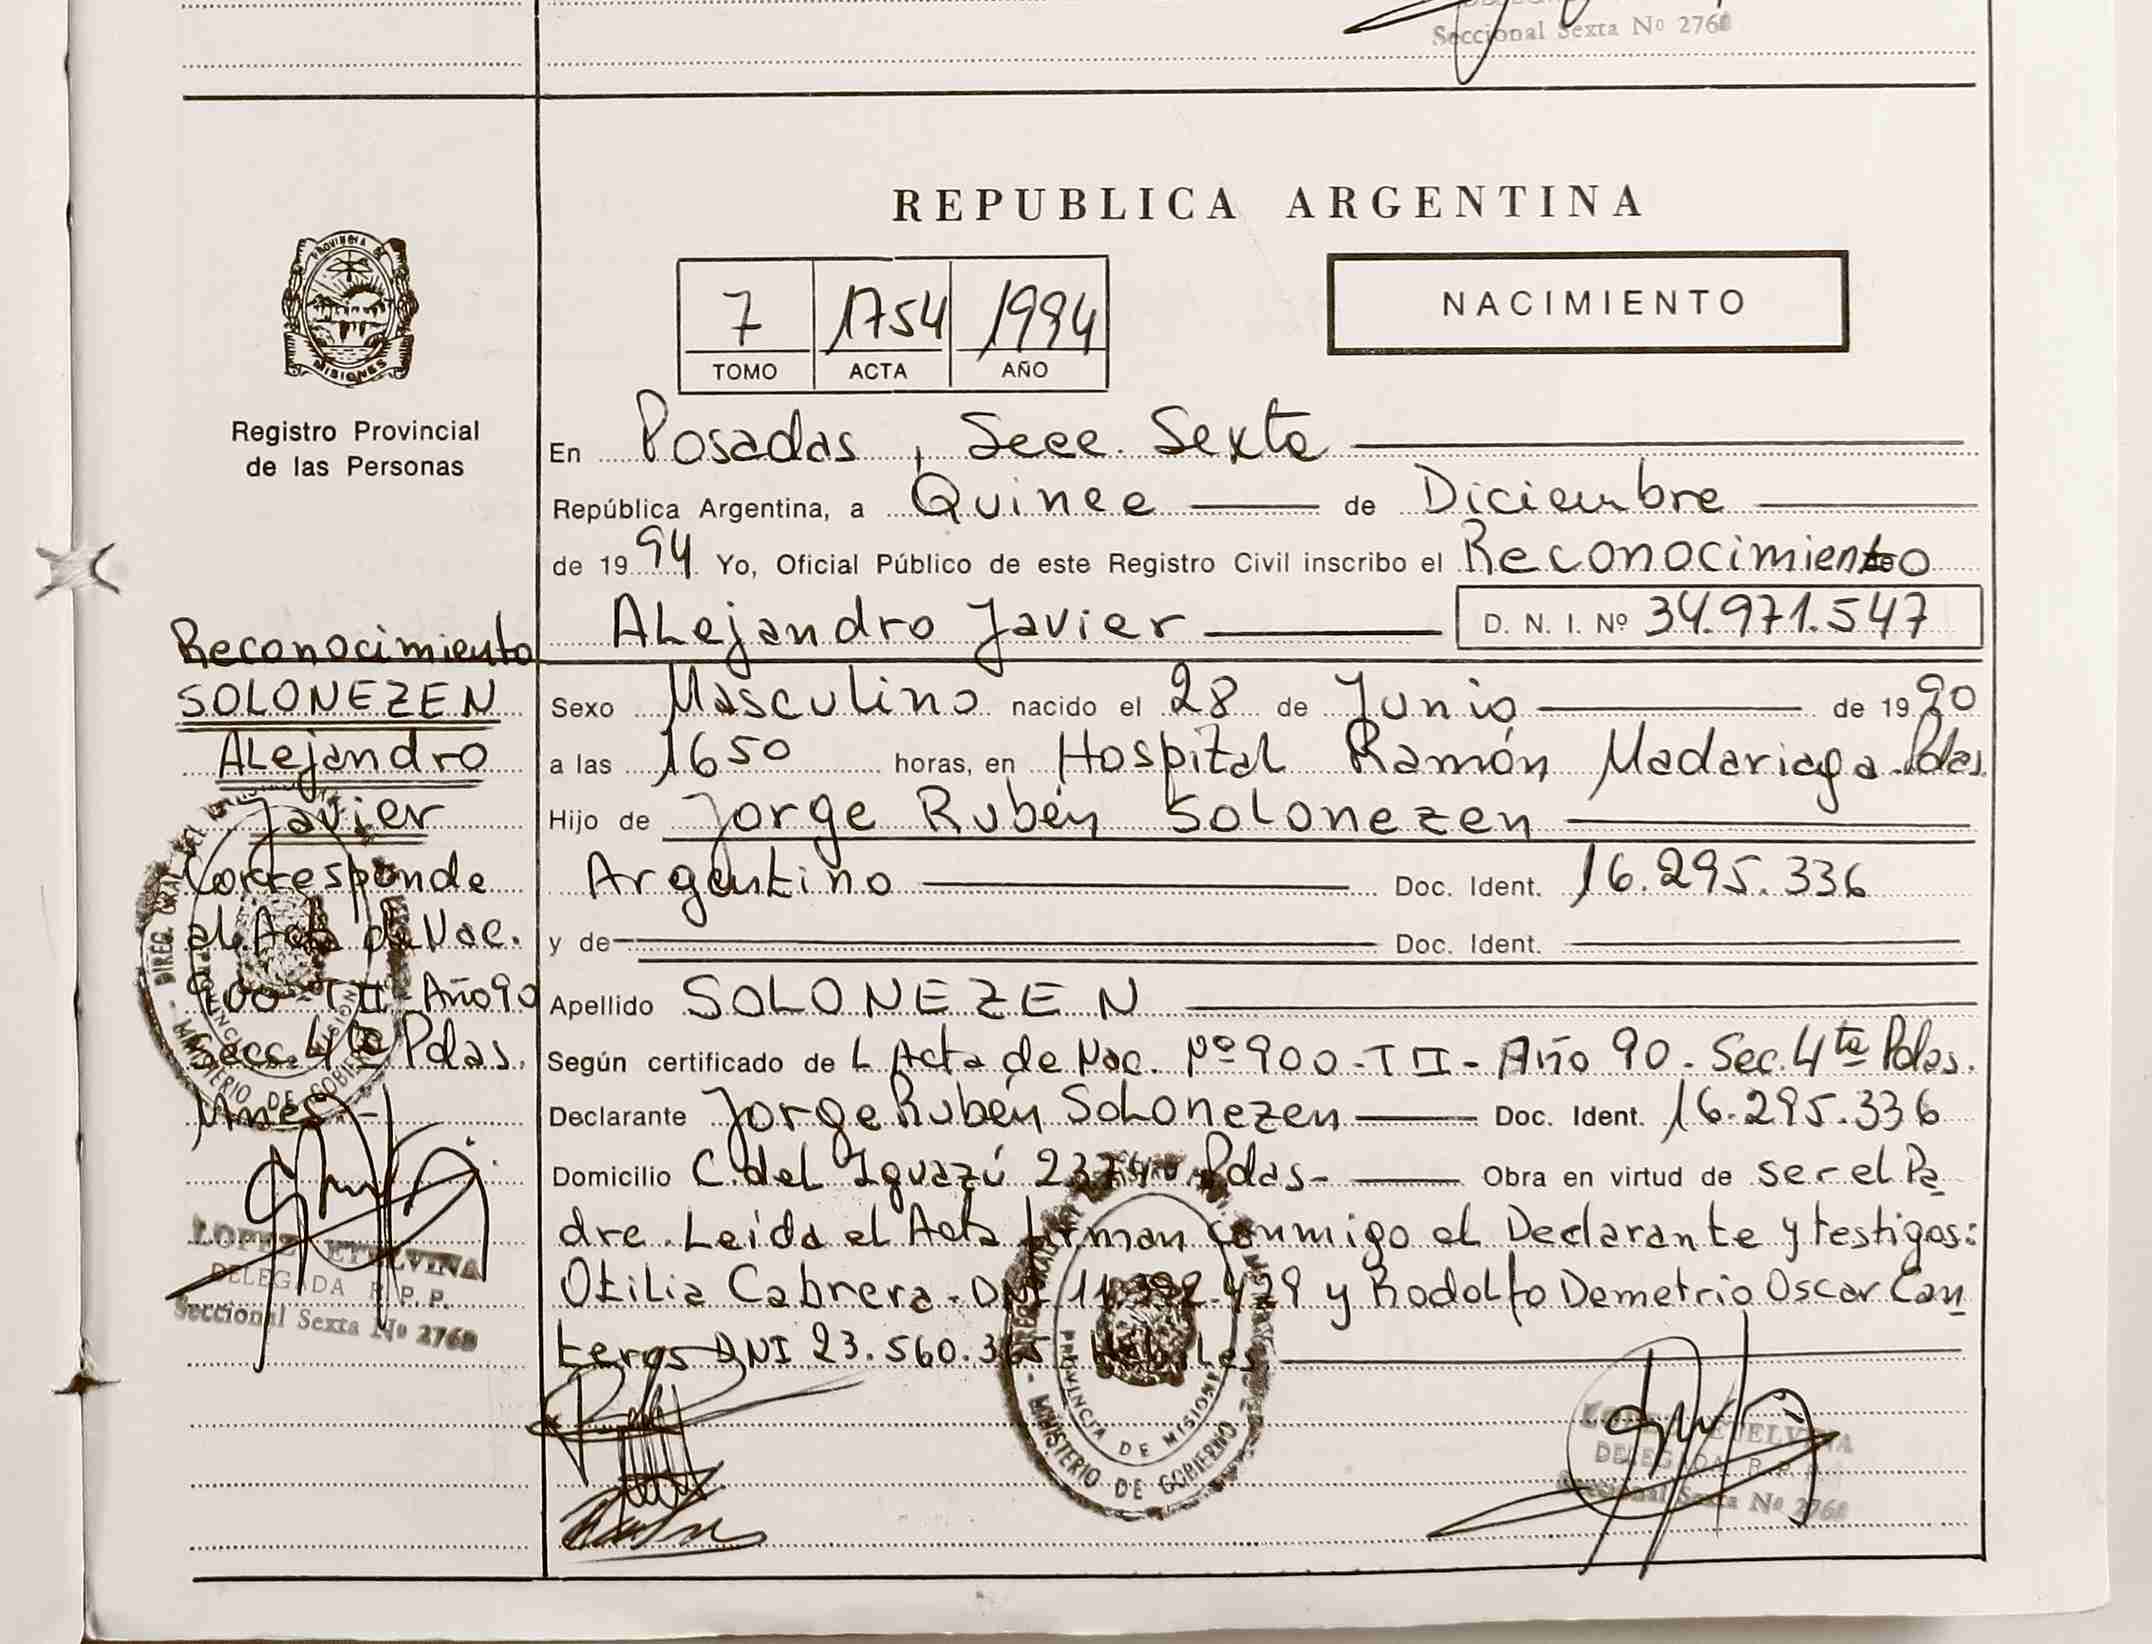 Seccional Sexta Nº 2768
REPUBLICA ARGENTINA
PROVINCIA DE
MISIONES
Registro Provincial
de las Personas
7 1754 1994
TOMO ACTA AÑO
NACIMIENTO
En Posadas, Secc. Sexta
República Argentina, a Quince de Diciembre
de 1994 Yo, Oficial Público de este Registro Civil inscribo el Reconocimiento
Alejandro Javier D. N. I. Nº 34.971.547
Sexo Masculino nacido el 28 de Junio de 1990
a las 1650 horas, en Hospital Ramón Madariaga-Pdas.
Hijo de Jorge Rubén Solonezen
Argentino Doc. Ident. 16.295.336
y de Doc. Ident.
Apellido SOLONEZEN
Según certificado de L Acta de Nac. Nº 900-T II-Año 90-Sec. 4ta Pdas.
Declarante Jorge Rubén Solonezen Doc. Ident. 16.295.336
Domicilio C. del Iguazú Pdas- Obra en virtud de ser el Pa
dre. Leída el Acta firman conmigo el Declarante y testigos:
Otilia Cabrera-DNI y Rodolfo Demetrio Oscar Can
teros DNI 23.560. Hábiles
Reconocimiento
SOLONEZEN
Alejandro
Javier
Corresponde
al Acta de Nac.
900-T II-Año 90
Secc. 4ta Pdas.
Mnes-
LOPEZ ETELVINA
DELEGADA R. P. P.
Seccional Sexta Nº 2768
MINISTERIO DE GOBIERNO
PROVINCIA DE MISIONES
LOPEZ ETELVINA
DELEGADA R. P. P.
Seccional Sexta Nº 2768